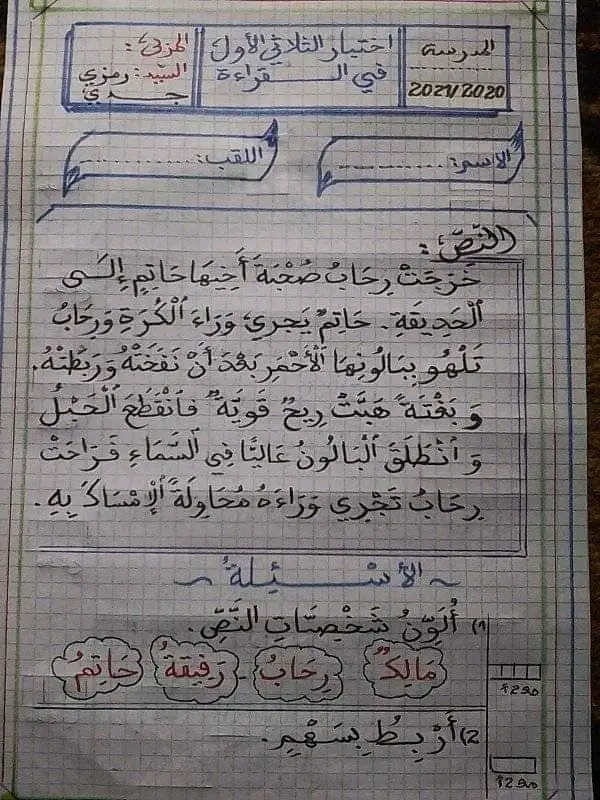 المدرسة
............
2021/2020
اختبار الثلاثي الأول
في القراءة
المربي:
السيّد: رمزي
جدي
الاسم: ..............
اللقب: ..............
النّصّ:
خَرَجَتْ رِحَابُ صُحْبَةَ أَخِيهَا حَاتِمٍ إِلَى
اَلْحَدِيقَةِ. حَاتِمٌ يَجرِي وَرَاءَ اَلْكُرَةِ وَرِحَابُ
تَلْهُو بِبَالُونِهَا اَلْأَحْمَرِ بَعْدَ أَنْ نَفَخَتْهُ وَرَبَطَتْهُ.
وَ بَغْتَةً هَبَّتْ رِيحٌ قَوِيَّةٌ فَانْقَطَعَ اَلْحَبْلُ
وَ اَنْطَلَقَ اَلْبَالُونُ عَالِيًا فِي اَلسَّمَاءِ فَرَاحَتْ
رِحَابُ تَجْرِي وَرَاءَهُ مُحَاوِلَةً اَلْإِمْسَاكَ بِهِ.
~ الأسْئِلةُ ~
1) أُلَوِّنُ شَخْصِيَّاتِ النَّصِّ.
مَالِكٌ رِحَابُ - رَفِيقَةُ حَاتِمٌ
مع2
2) أَرْبِطُ بِسَهْمٍ.
مع2